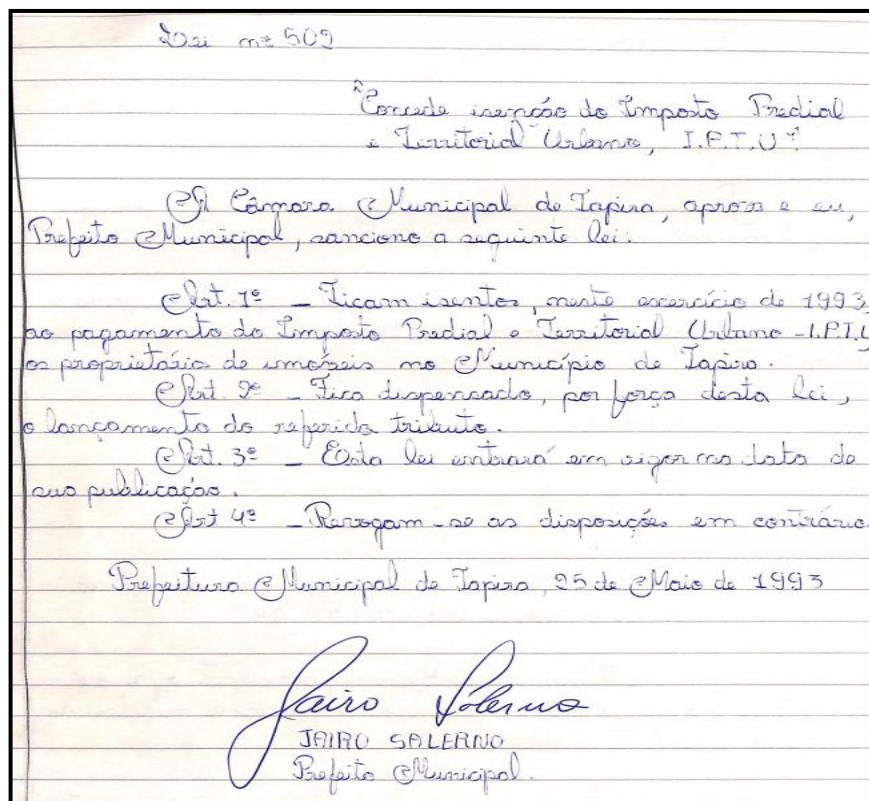 Lei nº 502
"Concede isenção do Imposto Predial
e Territorial Urbano, I.P.T.U".
A Câmara Municipal de Tapira, aprova e eu,
Prefeito Municipal, sanciono a seguinte lei:
Art. 1º - Ficam isentos, neste exercício de 1993,
ao pagamento do Imposto Predial e Territorial Urbano - I.P.T.U
os proprietário de imóveis no Município de Tapira.
Art. 2º - Fica dispensado, por força desta lei,
o lançamento do referido tributo.
Art. 3º - Esta lei entrará em vigor na data de
sua publicação.
Art 4º - Revogam-se as disposições em contrário.
Prefeitura Municipal de Tapira, 25 de Maio de 1993
Jairo Salerno
JAIRO SALERNO
Prefeito Municipal.